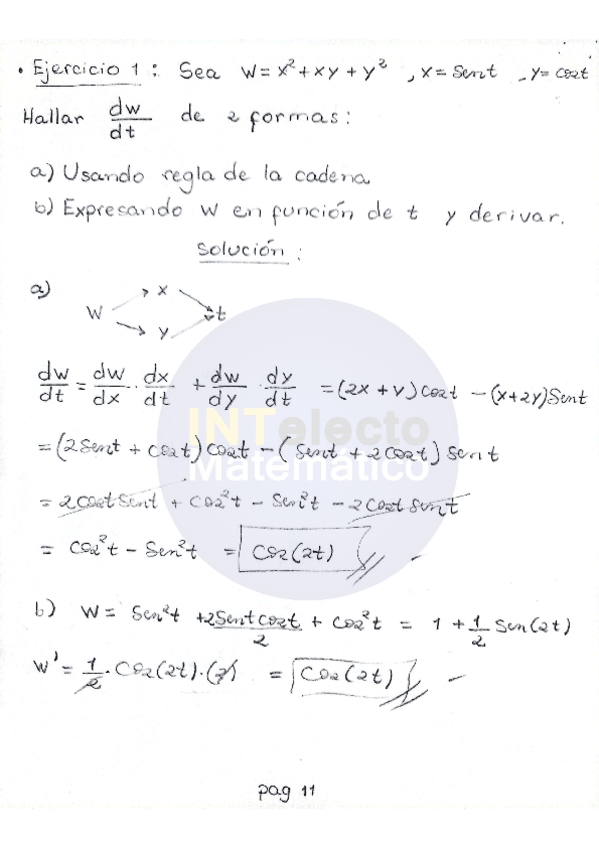 • Ejercicio 1 : Sea W = x² + xy + y² , x = Sent , y = Cost
Hallar dw/dt de 2 formas :
a) Usando regla de la cadena
b) Expresando W en función de t y derivar.
Solución :
a)
W x y t
dw/dt = dw/dx · dx/dt + dw/dy · dy/dt = (2x + y) Cost - (x + 2y) Sent
= (2Sent + Cost) Cost - (Sent + 2Cost) Sent
= 2Cost Sent + Cos²t - Sen²t - 2Cost Sent
= Cos²t - Sen²t = Cos(2t)
b) W = Sen²t + 2Sent Cost/2 + Cos²t = 1 + 1/2 Sen(2t)
W' = 1/2 · Cos(2t) · (2) = Cos(2t)
INTelecto
Matemático
pag 11